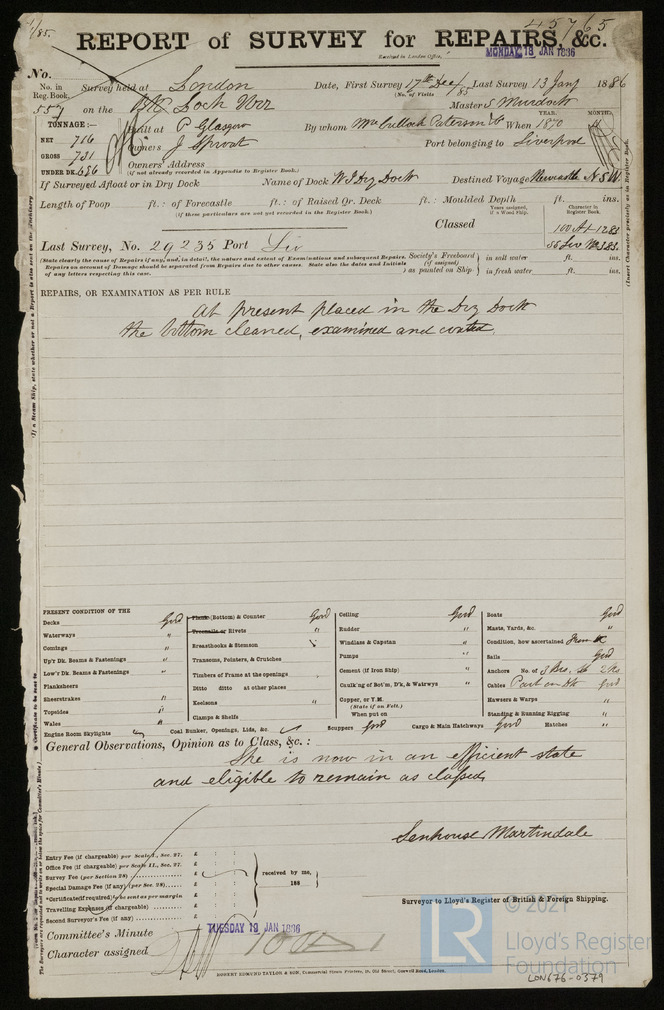 1/85. 45765
REPORT of SURVEY for REPAIRS, &c.
Received in London Office, MONDAY 18 JAN 1886
No.
No. in Reg. Book. Survey held at London Date, First Survey 17th Dec/85 Last Survey 13 Jany 1886
(No. of Visits)
557 on the Bk Loch Urr Master S Murdoch
TONNAGE:— YEAR. MONTH.
NET 716 Built at P Glasgow By whom McCulloch Paterson & Co When 1870 11
GROSS 731 Owners J Sproat Port belonging to Liverpool
UNDER DK. 686 Owners' Address
(if not already recorded in Appendix to Register Book.)
If Surveyed Afloat or in Dry Dock Name of Dock W I Dry Dock Destined Voyage Newcastle N.S.W.
Length of Poop ft.: of Forecastle ft.: of Raised Qr. Deck ft.: Moulded Depth ft. ins.
(If these particulars are not yet recorded in the Register Book.) Years assigned, if a Wood Ship. Character in Register Book.
Classed 100 A1
Last Survey, No. 29235 Port Liv
(State clearly the cause of Repairs if any, and, in detail, the nature and extent of Examinations and subsequent Repairs.
Repairs on account of Damage should be separated from Repairs due to other causes. State also the dates and Initials
of any letters respecting this case.
Society's Freeboard (if assigned) as painted on Ship
in salt water ft. ins.
in fresh water ft. ins.
REPAIRS, OR EXAMINATION AS PER RULE
At present placed in the Dry Dock
the bottom cleaned, examined and coated.
PRESENT CONDITION OF THE
Decks Good
Waterways "
Comings "
Up'r Dk. Beams & Fastenings "
Low'r Dk. Beams & Fastenings "
Planksheers
Sheerstrakes "
Topsides "
Wales "
Engine Room Skylights
Plank (Bottom) & Counter Good
Treenails or Rivets "
Breasthooks & Stemson
Transoms, Pointers, & Crutches
Timbers of Frame at the openings
Ditto ditto at other places
Keelsons "
Clamps & Shelfs
Coal Bunker, Openings, Lids, &c.
Ceiling Good
Rudder "
Windlass & Capstan "
Pumps "
Cement (if Iron Ship) "
Caulk'ng of Bot'm, D'k, & Watrwys "
Copper, or Y.M.
(State if on Felt.)
When put on
Scuppers Good Cargo & Main Hatchways Good
Boats Good
Masts, Yards, &c. "
Condition, how ascertained From Dk
Sails Good
Anchors No. of 3 Bro, 1 St 2 Ks
Cables Part on Dk Good
Hawsers & Warps "
Standing & Running Rigging "
Hatches "
General Observations, Opinion as to Class, &c.:
She is now in an efficient state
and eligible to remain as classed
Senhouse Martindale
Surveyor to Lloyd's Register of British & Foreign Shipping.
Entry Fee (if chargeable) per Scale I., Sec. 27. £ : :
Office Fee (if chargeable) per Scale II., Sec. 27. £ : :
Survey Fee (per Section 28) £ : :
Special Damage Fee (if any) (per Sec. 28) £ : :
*Certificate (if required) to be sent as per margin £
Travelling Expenses (if chargeable) £
Second Surveyor's Fee (if any) £
received by me,
188
Committee's Minute TUESDAY 19 JAN 1886
Character assigned 100 A1
ROBERT EDMUND TAYLOR & SON, Commercial Steam Printers, 19, Old Street, Goswell Road, London.
LR © 2021
Lloyd's Register
Foundation
LON676-0379